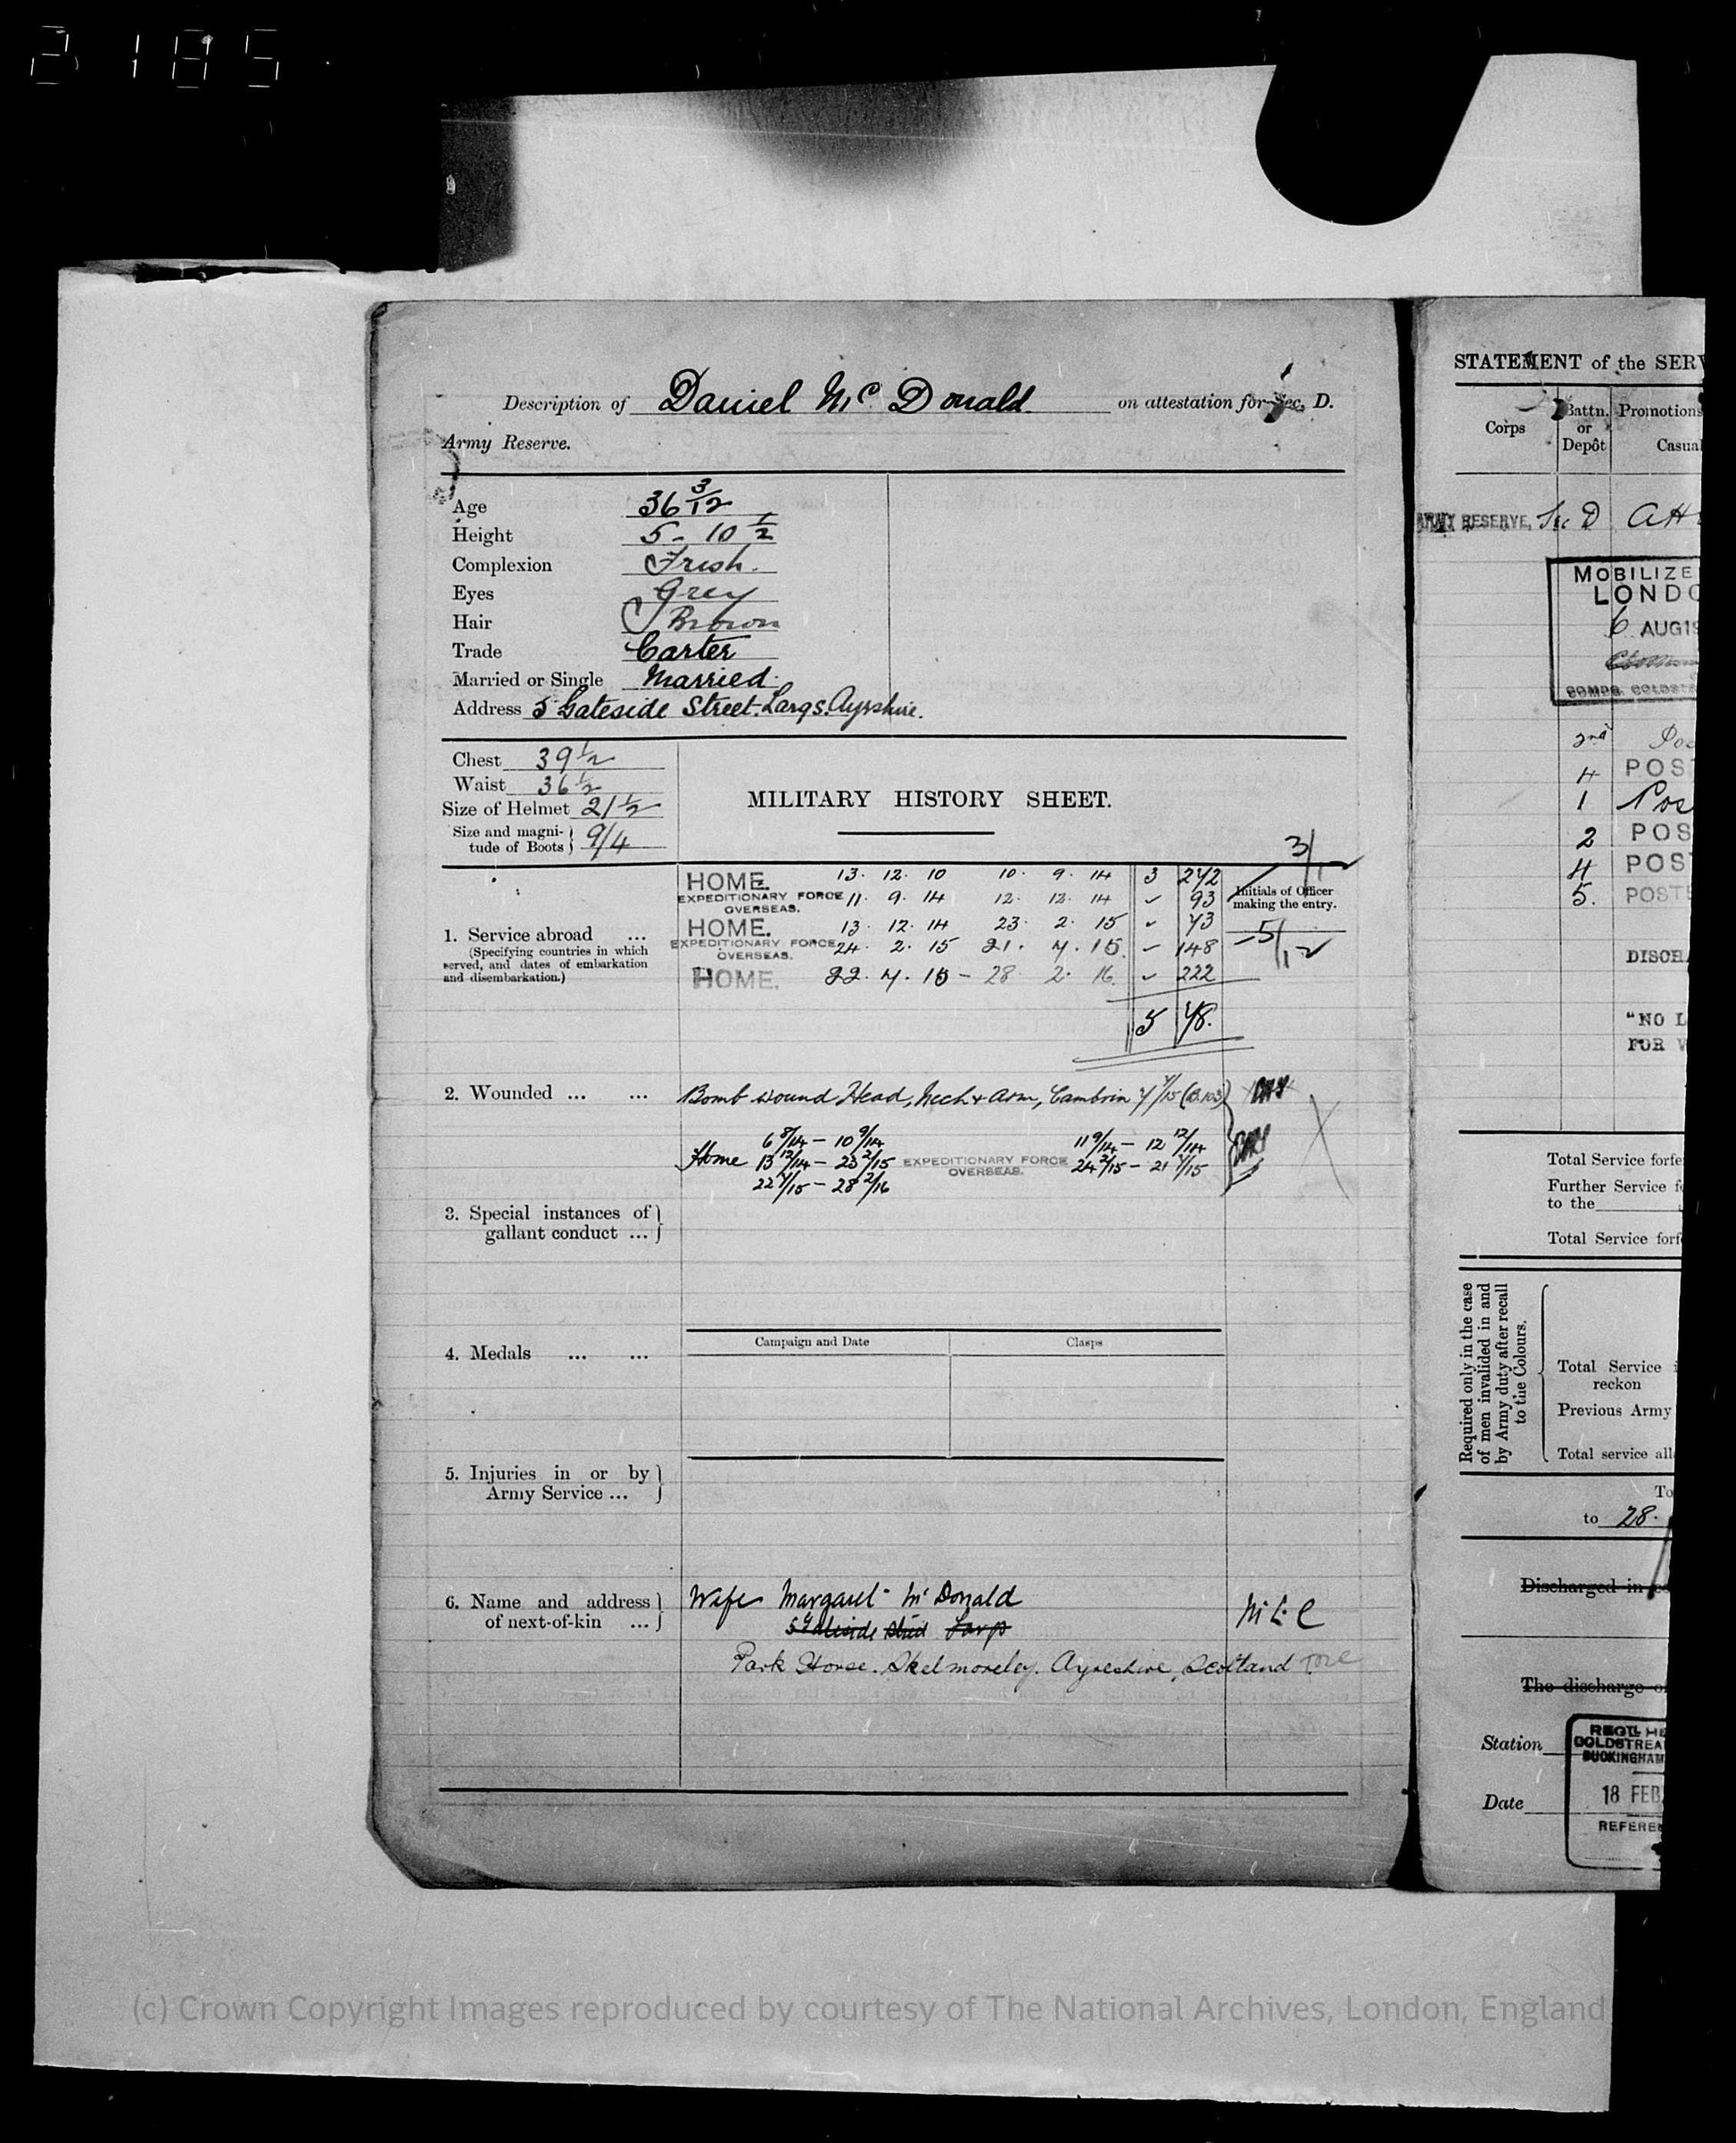 2185
Description of Daniel McDonald on attestation for Sec. D.
Army Reserve.
Age 36 3/12
Height 5 - 10 1/2
Complexion Fresh.
Eyes Grey
Hair Brown
Trade Carter
Married or Single Married.
Address 5 Gateside Street. Largs. Ayrshire.
Chest 39 1/2
Waist 36 1/2
Size of Helmet 21 1/2
Size and magni-
tude of Boots 9/4
MILITARY HISTORY SHEET.
3/1
Initials of Officer
making the entry.
1. Service abroad ...
(Specifying countries in which
served, and dates of embarkation
and disembarkation.)
HOME. 13. 12. 10 10. 9. 14 3 272
EXPEDITIONARY FORCE 11. 9. 14 12. 12. 14 93
OVERSEAS.
HOME. 13. 12. 14 23. 2. 15 73
EXPEDITIONARY FORCE 24. 2. 15 21. 7. 15. 148
OVERSEAS.
HOME. 22. 7. 15 - 28 2. 16. 222
5 78.
2. Wounded ... ... Bomb wound Head, Neck & Arm, Cambrin 7 7/15 (B.103)
Home 6 8/14 - 10 9/14
13 12/14 - 23 2/15
22 7/15 - 28 2/16
EXPEDITIONARY FORCE
OVERSEAS.
11 9/14 - 12 12/14
24 2/15 - 21 7/15
3. Special instances of
gallant conduct ...
4. Medals ... ...
Campaign and Date Clasps
5. Injuries in or by
Army Service ...
6. Name and address
of next-of-kin ...
Wife Margaret McDonald
5 Gateside Street Largs
Park House. Skelmorley. Ayreshire, Scotland
STATEMENT of the SERV
Corps
Battn.
or
Depôt
Promotions
Casual
ARMY RESERVE, Sec D Att
MOBILIZE
LONDO
6 AUG 19
COMDG. COLDST
2nd Pos
4 POS
1 Pos
2 POS
4 POS
5. POST
DISCHA
"NO L
FOR V
Total Service forfe
Further Service f
to the
Total Service forf
Required only in the case
of men invalided in and
by Army duty after recall
to the Colours.
Total Service i
reckon
Previous Army
Total service all
To
to 28.
Discharged in co
The discharge o
Station
REGTL HE
COLDSTREA
BUCKINGHAM
Date
18 FEB
REFEREN
(c) Crown Copyright Images reproduced by courtesy of The National Archives, London, England